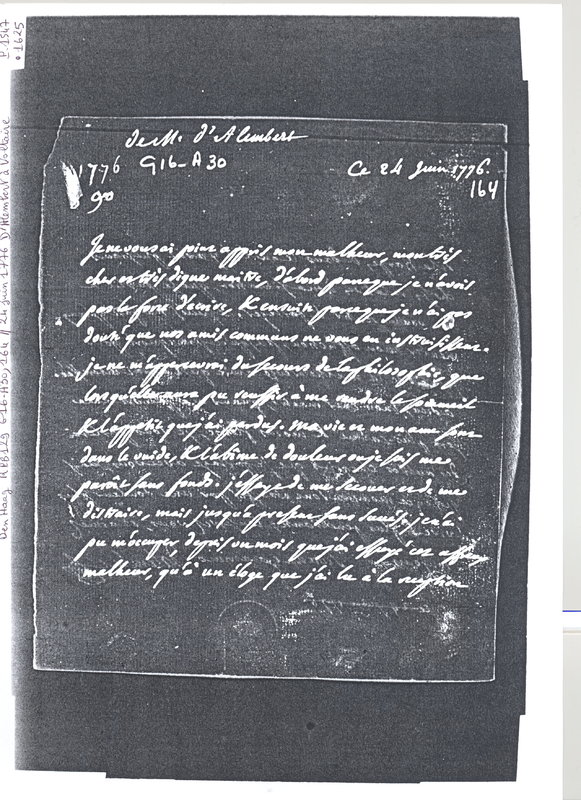 P.1547
•1625
Den Haag RPB129 G16-A30, 164 // 24 juin 1776 D'Alembert à Voltaire
de M. d'Alembert
1776 G16-A30
Ce 24 Juin 1776.
90
164
Je ne vous ai point appris mon malheur, mon très
cher et très digne maître, d'abord parceque je n'avois
pas la force d'écrire, & ensuite parceque je n'ai pas
douté que nos amis communs ne vous en instruisissent.
je ne m'appercevrai du secours de la philosophie, que
lorsqu'elle aura pu reussir à me rendre le sommeil
& l'appetit que j'ai perdus. ma vie et mon ame sont
dans le vuide, & l'abîme de douleur où je suis me
paroît sans fonds. j'essaye de me secouer et de me
distraire, mais jusqu'à present sans succès. je n'ai
pu m'occuper, depuis un mois que j'ai essuyé cet affreux
malheur, qu'à un éloge que j'ai lu à la reception